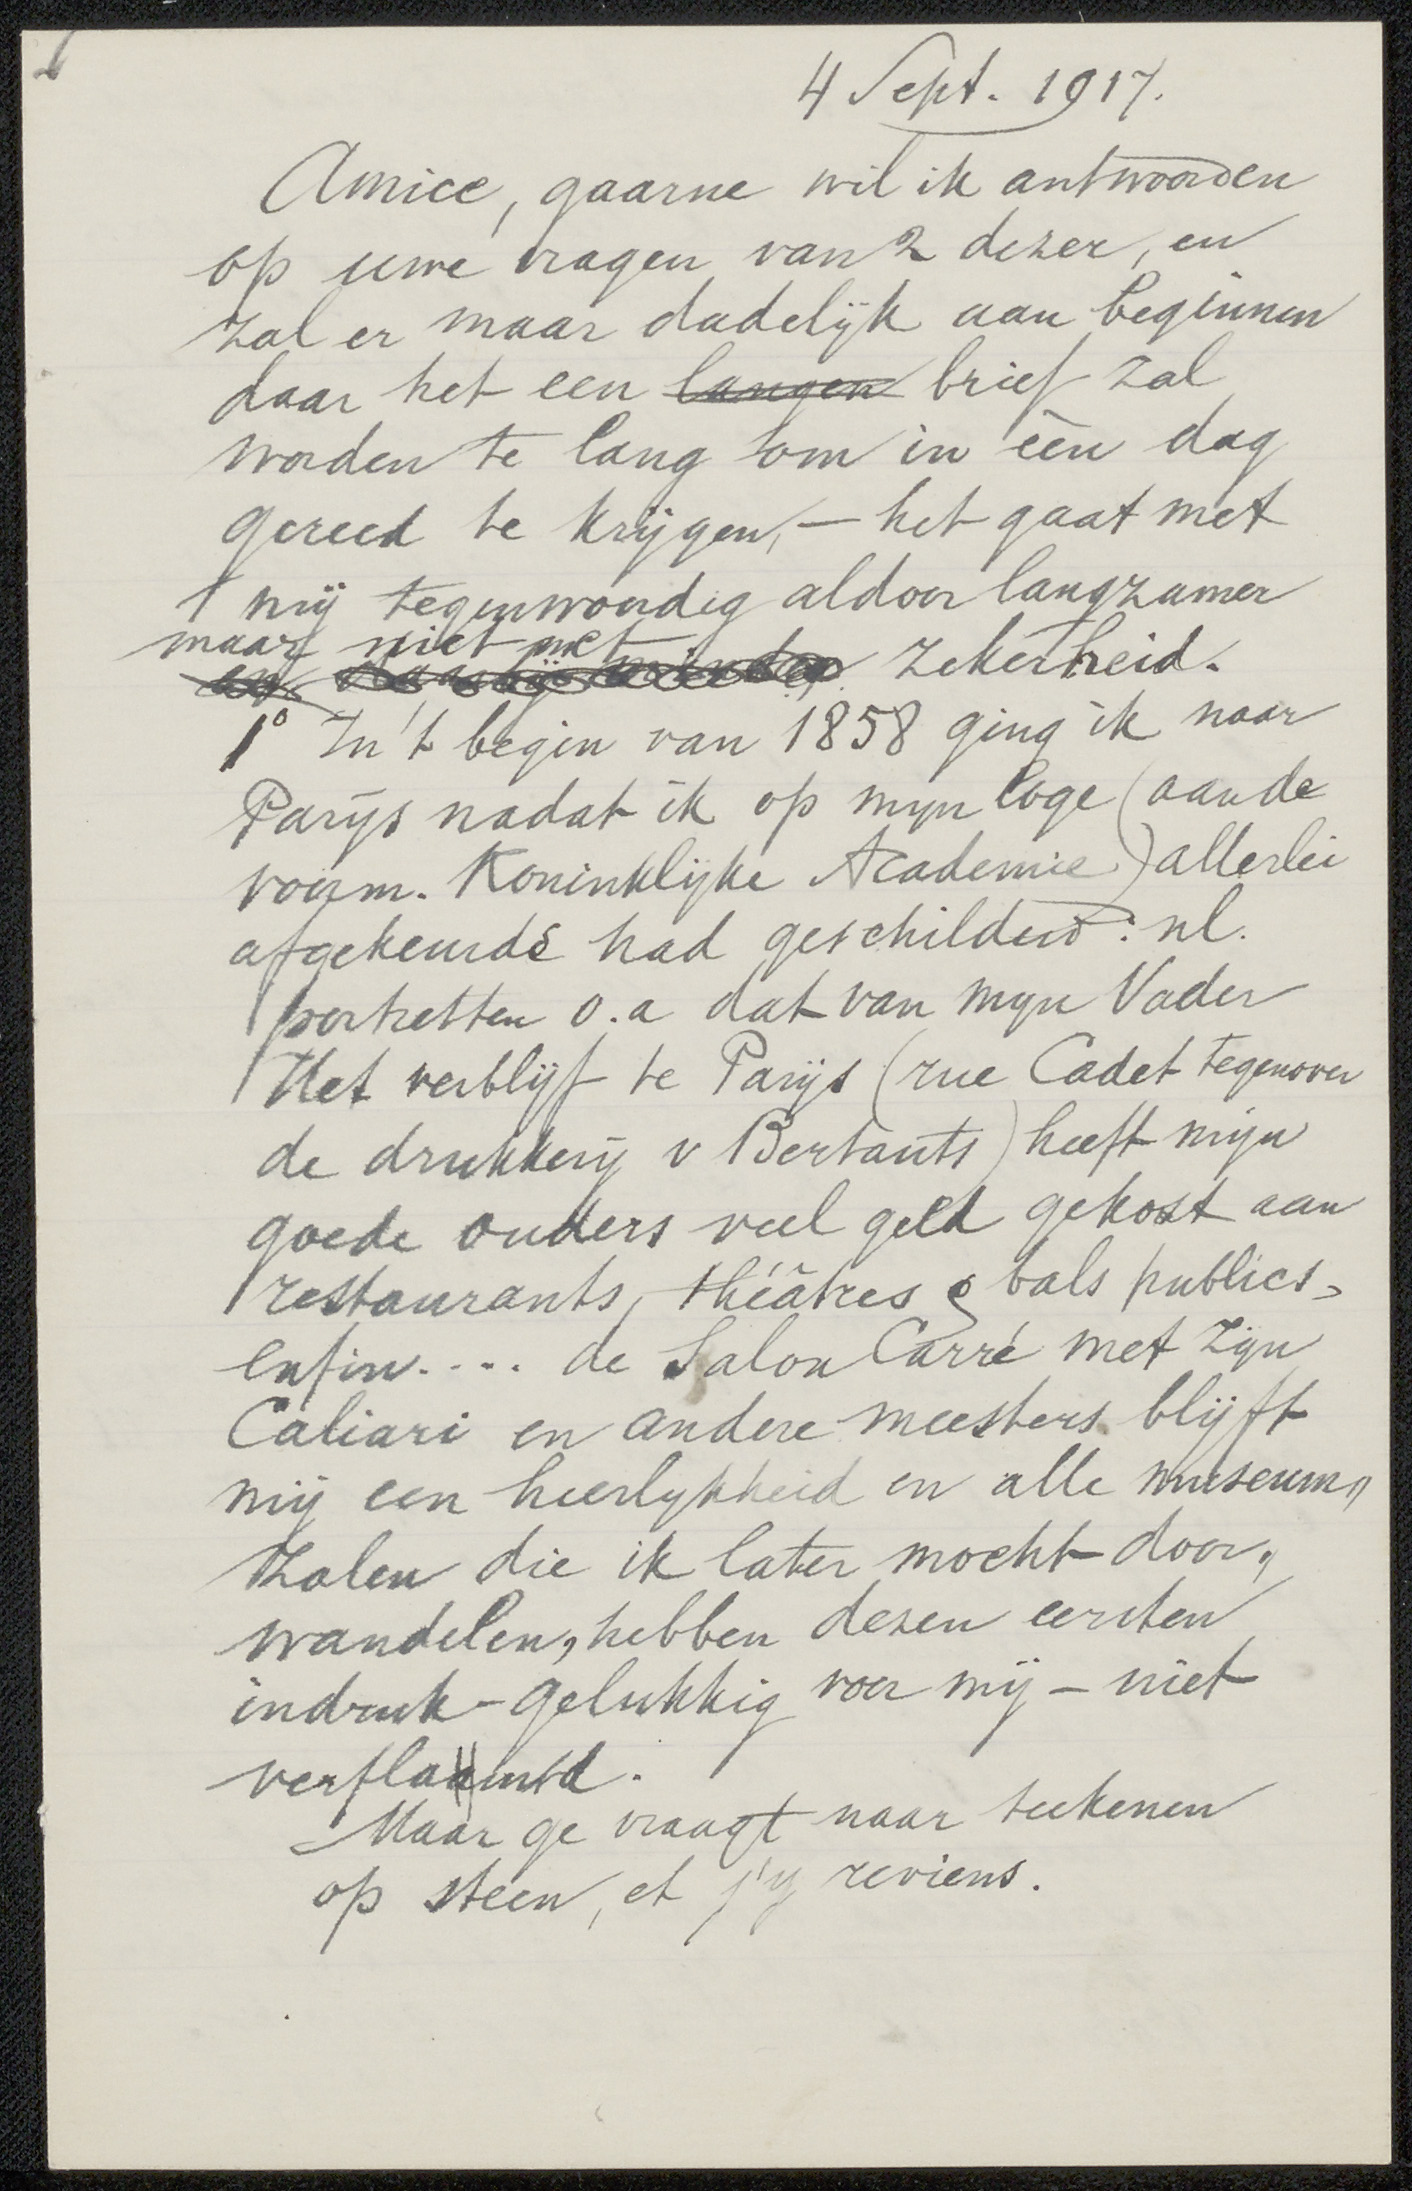 4 Sept. 1917.
Amice, gaarne wil ik antwoorden
op uwe vragen van 2 dezer, en
zal er maar dadelijk aan beginnen
daar het een langen brief zal
worden te lang om in één dag
gereed te krijgen, — het gaat met
mij tegenwoordig aldoor langzamer
maar niet met
en zekerheid.
1° In 't begin van 1858 ging ik naar
Parijs nadat ik op mijn loge (aan de
voorm. Koninklijke Academie) allerlei
afgekeurds had geschilderd: nl.
portretten o.a dat van mijn Vader
Het verblijf te Parijs (rue Cadet tegenover
de drukkerij v Bertauts) heeft mijn
goede ouders veel geld gekost aan
restaurants, théâtres & bals publics,
enfin.... de Salon Carré met zijn
Caliari en andere meesters blijft
mij een heerlijkheid en alle museum„
zalen die ik later mocht door„
wandelen, hebben dezen eersten
indruk - gelukkig voor mij - niet
Maar ge vraagt naar teekenen
op steen, et j'y reviens.